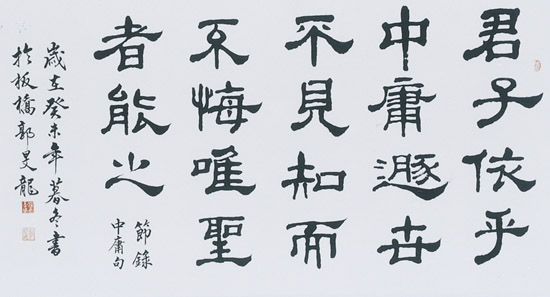 君子依乎
中庸遯世
不見知而
不悔唯聖
者能之
節錄
中庸句
歲在癸未年暮冬書
於板橋郭旻龍